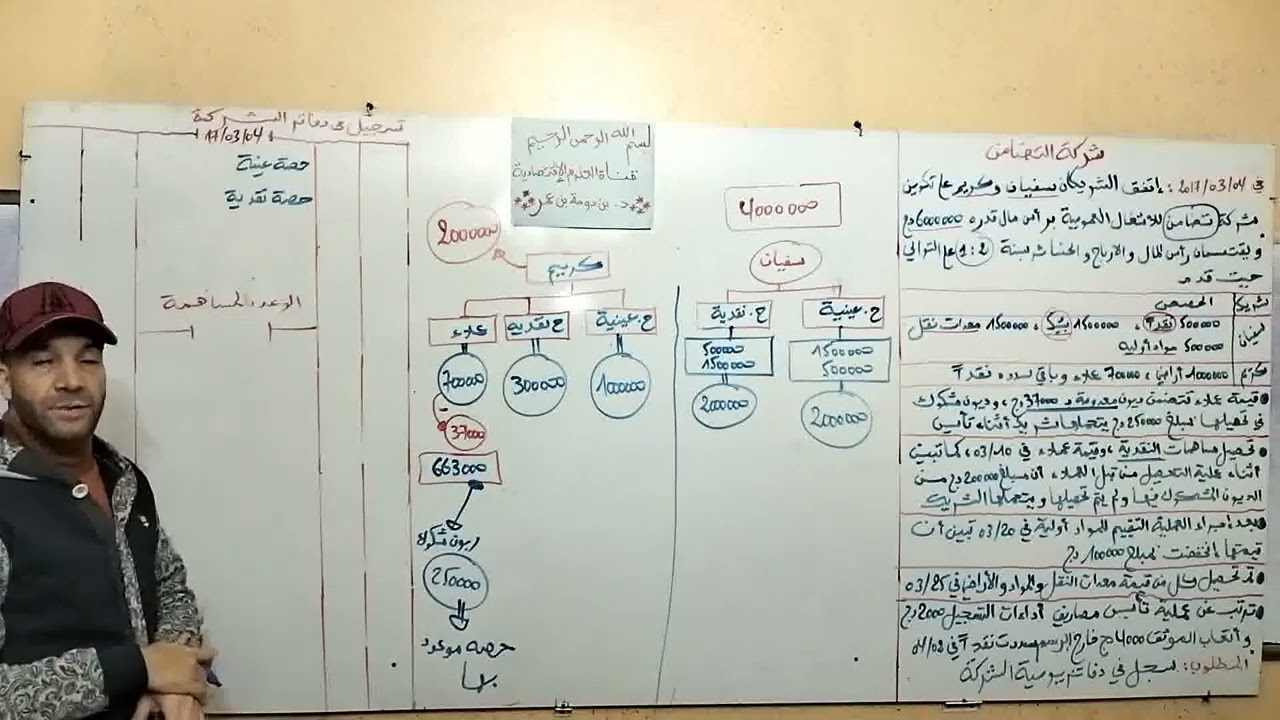 شركة التضامن
في 2017/03/04: إتفق الشريكان سفيان وكريم على تكوين
شركة تضامن للأشغال العمومية برأس مال قدره 6000000 دج
ويقتسمان رأس المال والأرباح والخسائر بنسبة 1:2 على التوالي
حيث قدم
شريك الحصص
سفيان 500000 نقدا، 1500000 بشيك، 1500000 معدات نقل
500000 مواد أولية
كريم 1000000 أراضي، 700000 عملاء وباقي سدده نقدا
قيمة عملاء تتضمن ديون معدومة بـ 37000 دج، وديون مشكوك
في تحصيلها بمبلغ 250000 دج يتحملها شريك أثناء تأسيس
تحصيل مساهمات النقدية، وقيمة عملاء في 03/10، كما تبين
أثناء عملية التحصيل من قبل العملاء أن مبلغ 200000 دج من
الديون المشكوك فيها ولم يتم تحصيلها ويتحملها الشريك
بعد إجراء العملية التقييم للمواد أولية في 03/20 تبين أن
قيمتها انخفضت بمبلغ 100000 دج
تم تحصيل كل من قيمة معدات النقل والمواد والأراضي في 03/25
ترتب عن عملية تأسيس مصاريف أداءات التسجيل 2000 دج
وأتعاب الموثق 4000 دج خارج الرسم سددت نقدا في 04/02
المطلوب: سجل في دفاتر يومية الشركة
بسم الله الرحمن الرحيم
قناة العلوم الإقتصادية
د. بن دومة بن عمر
4000000
سفيان
ح. عينية ح. نقدية
1500000 500000
500000 1500000
2000000 2000000
2000000
كريم
ح. عينية ح نقدية عملاء
1000000 300000 700000
-
37000
663000
ديون مشكوك
250000
حصة موعود
بها
تسجيل في دفاتر الشركة
17/03/04
حصة عينية
حصة نقدية
الوعد بالمساهمة